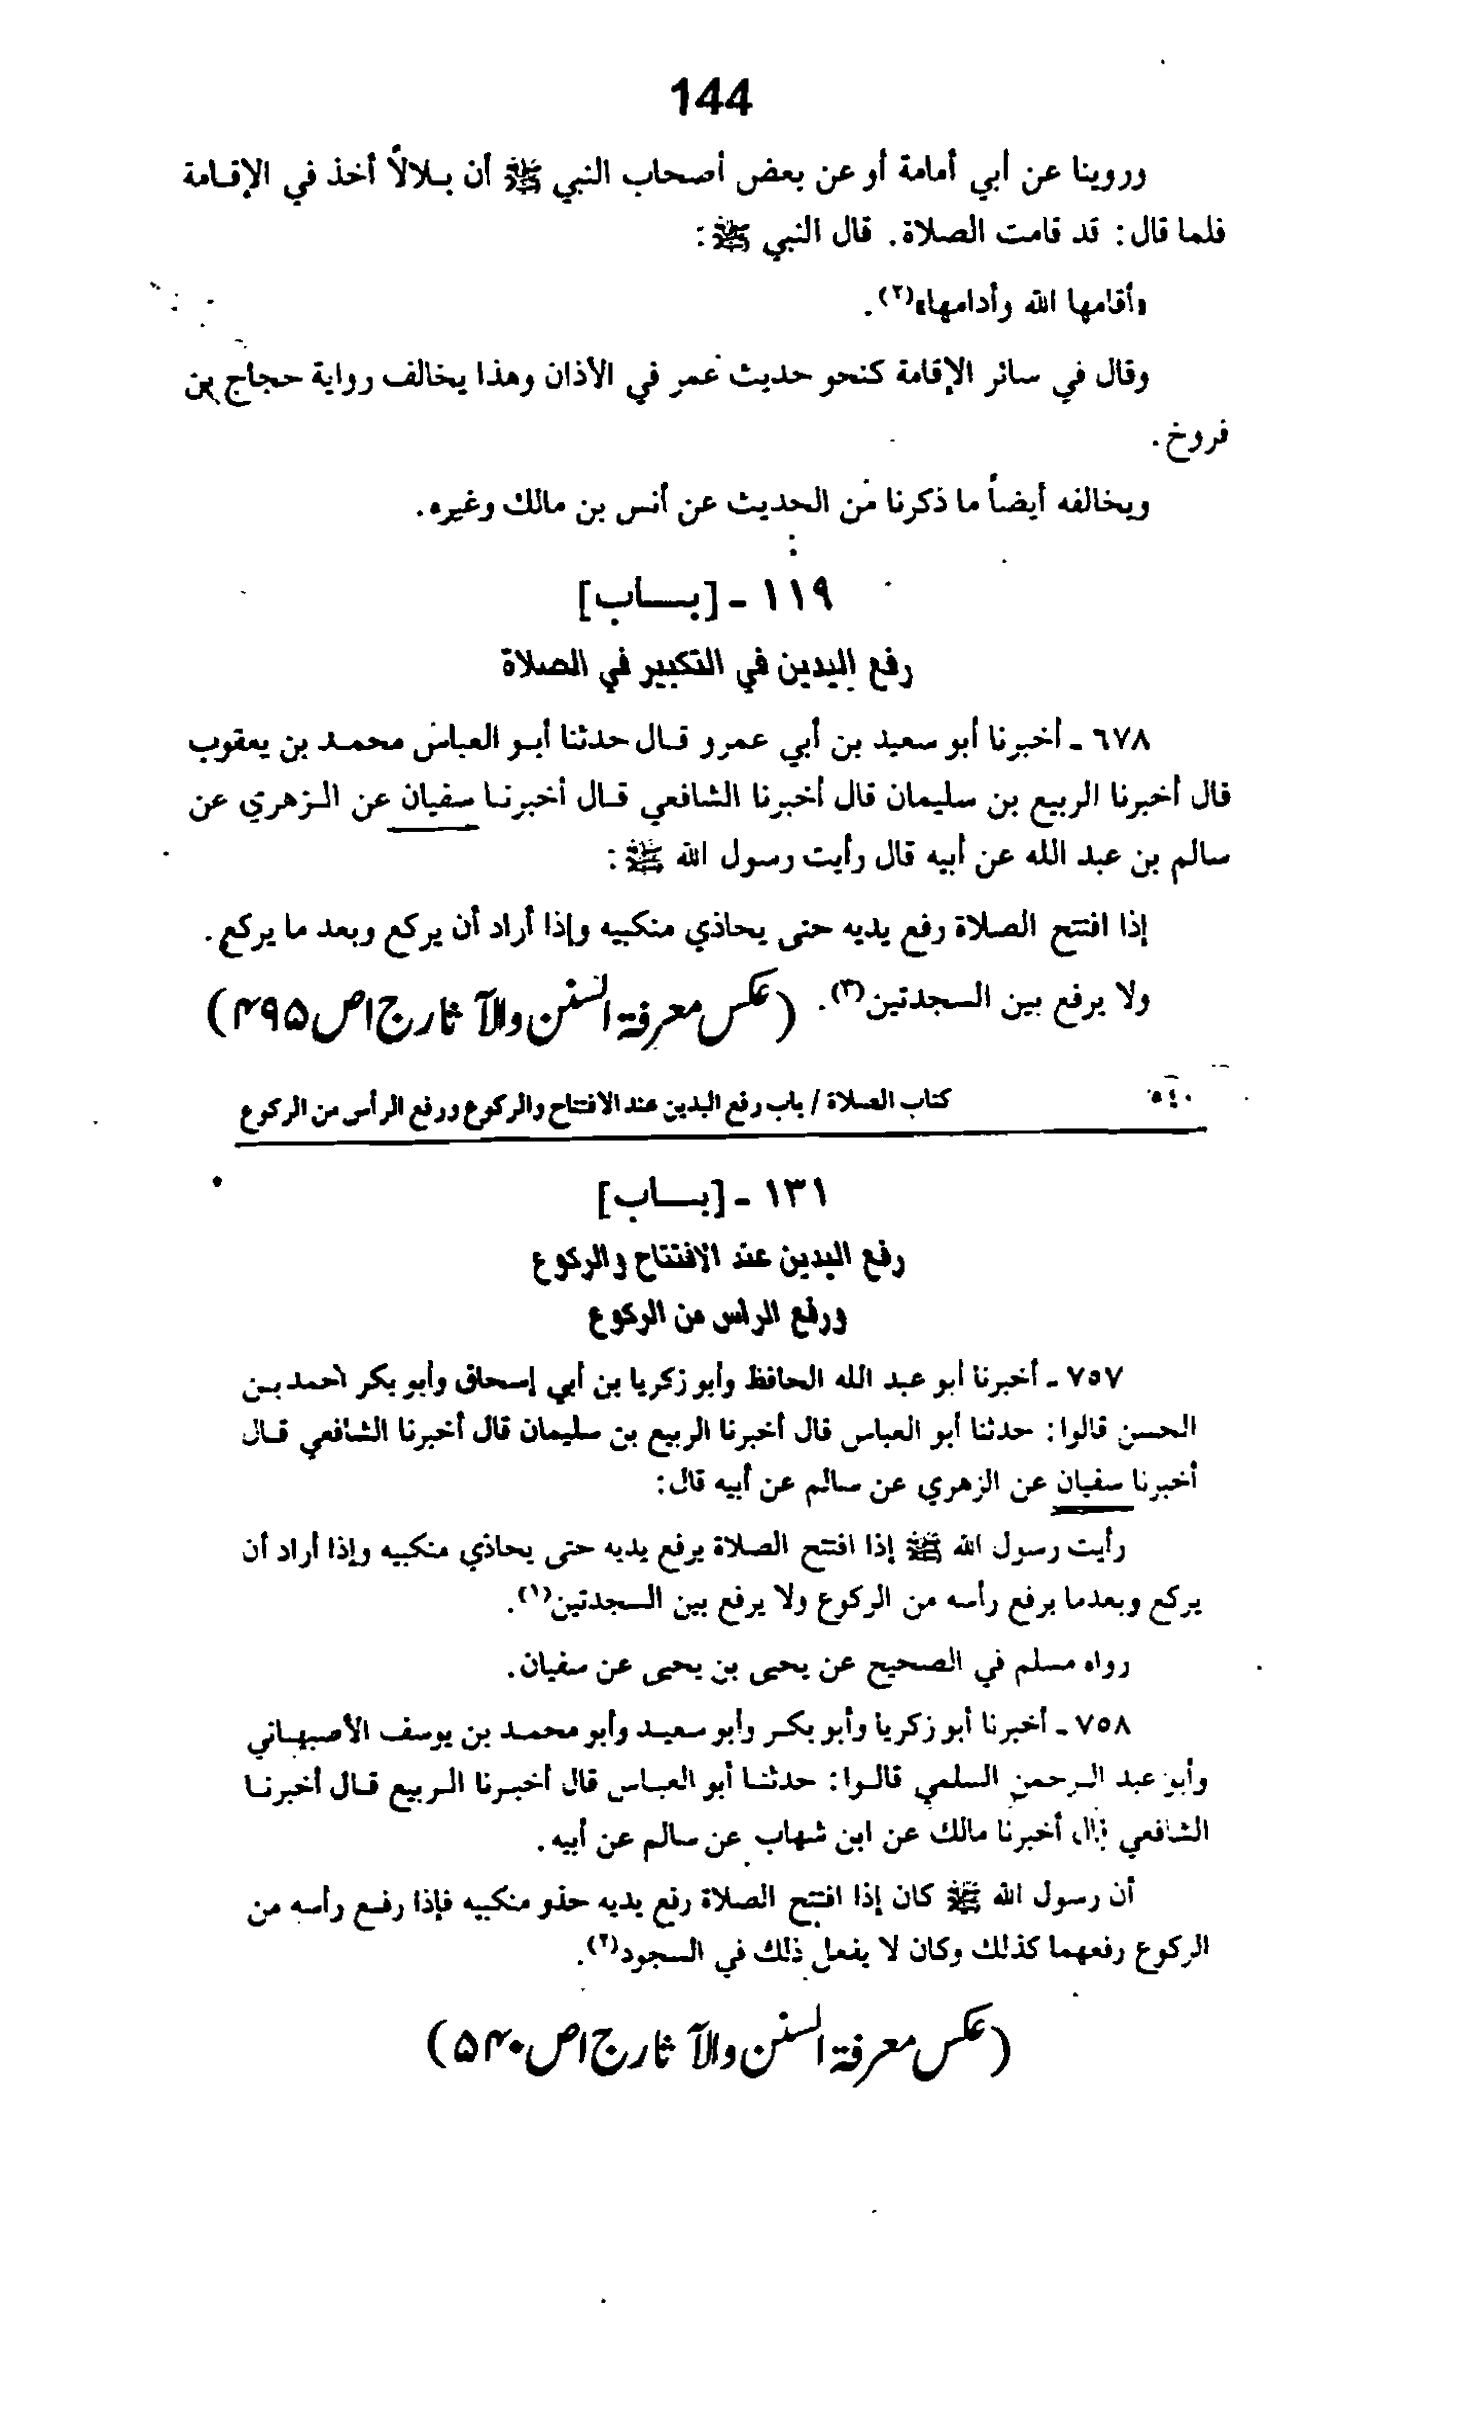 144
وروينا عن أبي أمامة أو عن بعض أصحاب النبي ﷺ أن بلالاً أخذ في الإقامة
فلما قال: قد قامت الصلاة. قال النبي ﷺ:
«أقامها الله وأدامها»(٢).
وقال في سائر الإقامة كنحو حديث عمر في الأذان وهذا يخالف رواية حجاج بن
فروخ.
ويخالفه أيضاً ما ذكرنا من الحديث عن أنس بن مالك وغيره.
١١٩ - [بـاب]
رفع اليدين في التكبير في الصلاة
٦٧٨ - أخبرنا أبو سعيد بن أبي عمرو قال حدثنا أبو العباس محمد بن يعقوب
قال أخبرنا الربيع بن سليمان قال أخبرنا الشافعي قال أخبرنا سفيان عن الزهري عن
سالم بن عبد الله عن أبيه قال رأيت رسول الله ﷺ:
إذا افتتح الصلاة رفع يديه حتى يحاذي منكبيه وإذا أراد أن يركع وبعد ما يركع.
ولا يرفع بين السجدتين(٣). (عکس معرفۃ السنن والآثار ج۱ ص۴۹۵)
٥٤٠ كتاب الصلاة / باب رفع اليدين عند الافتتاح والركوع ورفع الرأس من الركوع
١٣١ - [بـاب]
رفع اليدين عند الافتتاح والركوع
ورفع الرأس من الركوع
٧٥٧ - أخبرنا أبو عبد الله الحافظ وأبو زكريا بن أبي إسحاق وأبو بكر أحمد بن
الحسن قالوا: حدثنا أبو العباس قال أخبرنا الربيع بن سليمان قال أخبرنا الشافعي قال
أخبرنا سفيان عن الزهري عن سالم عن أبيه قال:
رأيت رسول الله ﷺ إذا افتتح الصلاة يرفع يديه حتى يحاذي منكبيه وإذا أراد أن
يركع وبعدما يرفع رأسه من الركوع ولا يرفع بين السجدتين(١).
رواه مسلم في الصحيح عن يحيى بن يحيى عن سفيان.
٧٥٨ - أخبرنا أبو زكريا وأبو بكر وأبو سعيد وأبو محمد بن يوسف الأصبهاني
وأبو عبد الرحمن السلمي قالوا: حدثنا أبو العباس قال أخبرنا الربيع قال أخبرنا
الشافعي قال أخبرنا مالك عن ابن شهاب عن سالم عن أبيه.
أن رسول الله ﷺ كان إذا افتتح الصلاة رفع يديه حذو منكبيه فإذا رفع رأسه من
الركوع رفعهما كذلك وكان لا يفعل ذلك في السجود(٢).
(عکس معرفۃ السنن والآثار ج۱ ص۵۴۰)